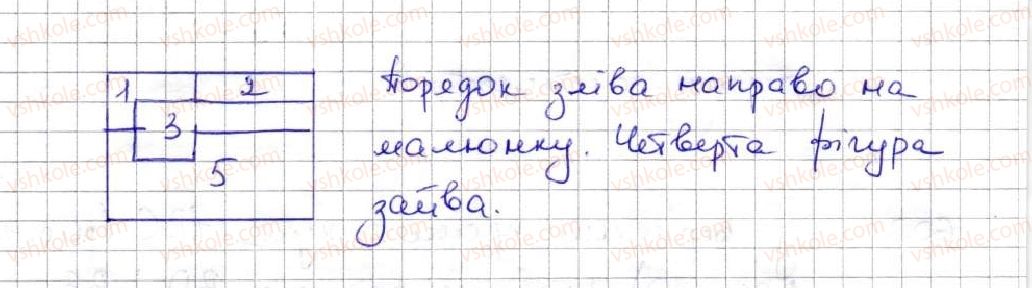 1 2
3
5
Порядок зліва направо на
малюнку. Четверта фігура
зайва.